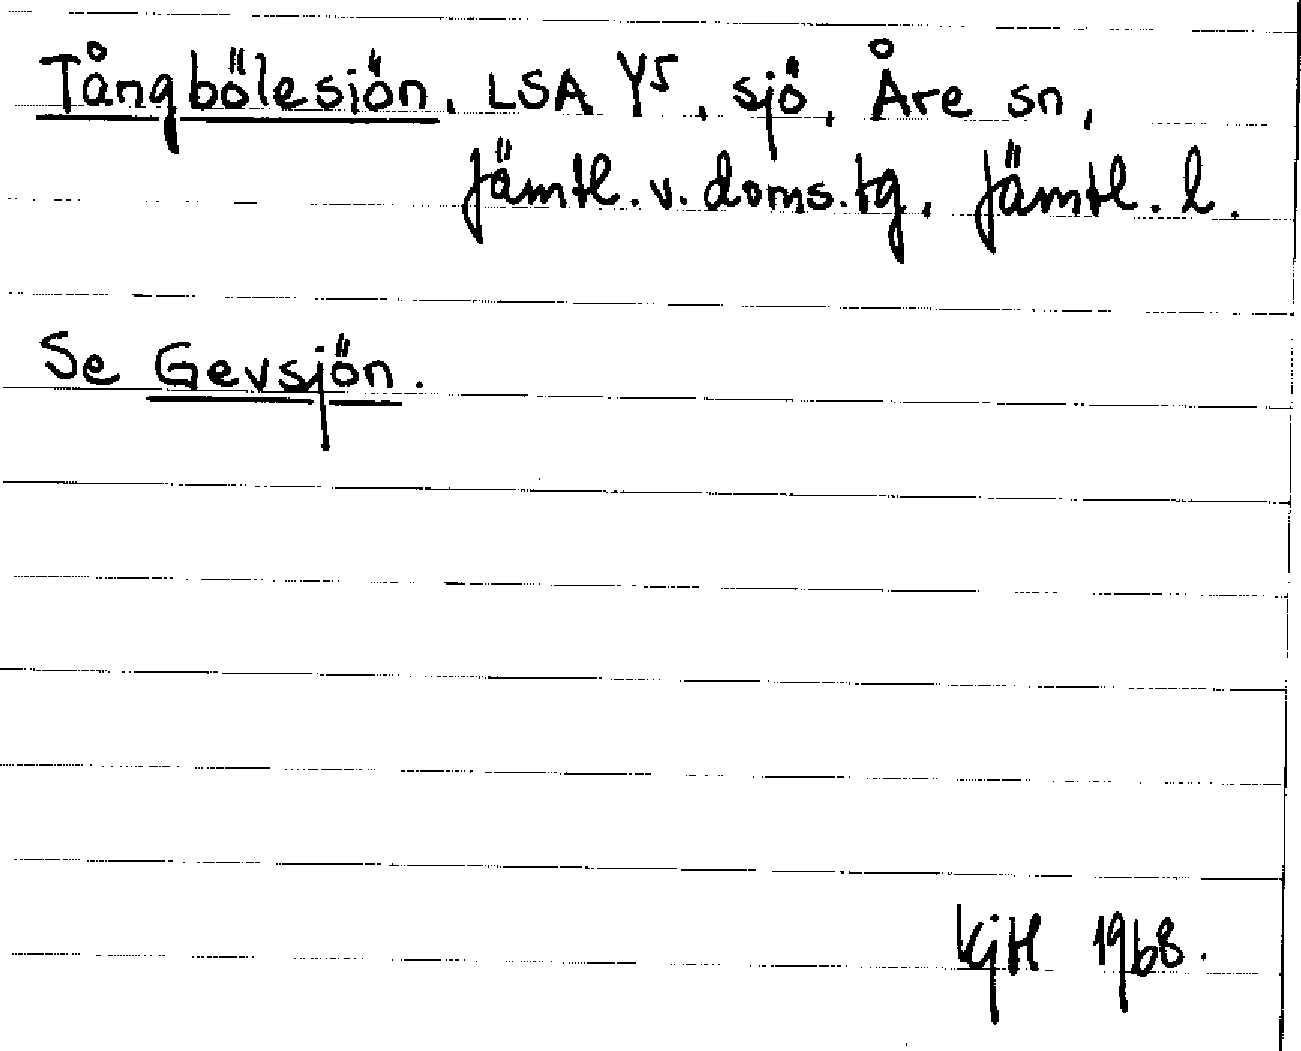 Tångbölesjön, LSA Y5, sjö, Åre sn,
Jämtl. v. doms.tg, Jämtl. l.
Se Gevsjön.
KjH 1968.